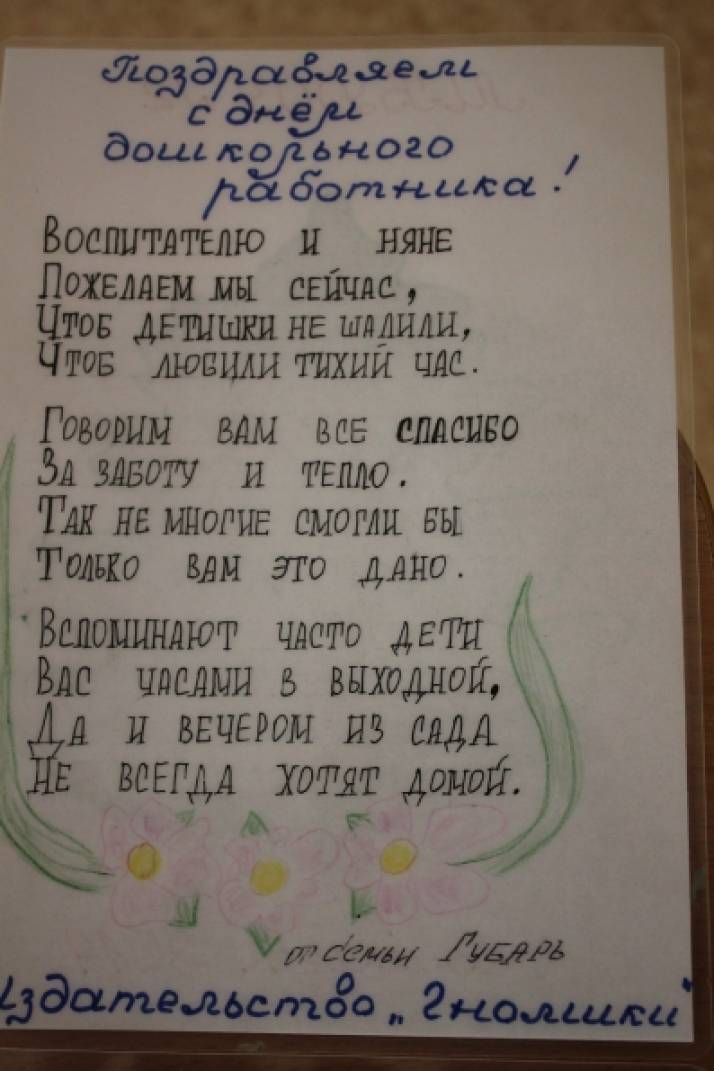 Поздравляем
с днём
дошкольного
работника!
Воспитателю и няне
Пожелаем мы сейчас,
Чтоб детишки не шалили,
Чтоб любили тихий час.
Говорим вам все спасибо
За заботу и тепло.
Так не многие смогли бы
Только вам это дано.
Вспоминают часто дети
Вас часами в выходной,
Да и вечером из сада
Не всегда хотят домой.
от семьи Губарь
Издательство „Гномики"